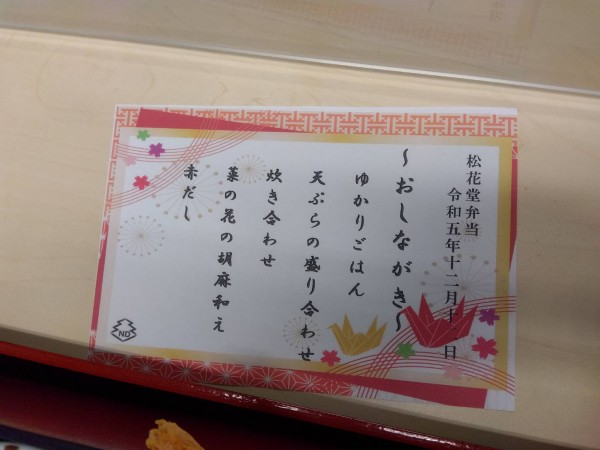 松花堂弁当
令和五年十二月十 日
～おしながき～
ゆかりごはん
天ぷらの盛り合わせ
炊き合わせ
菜の花の胡麻和え
赤だし
ND